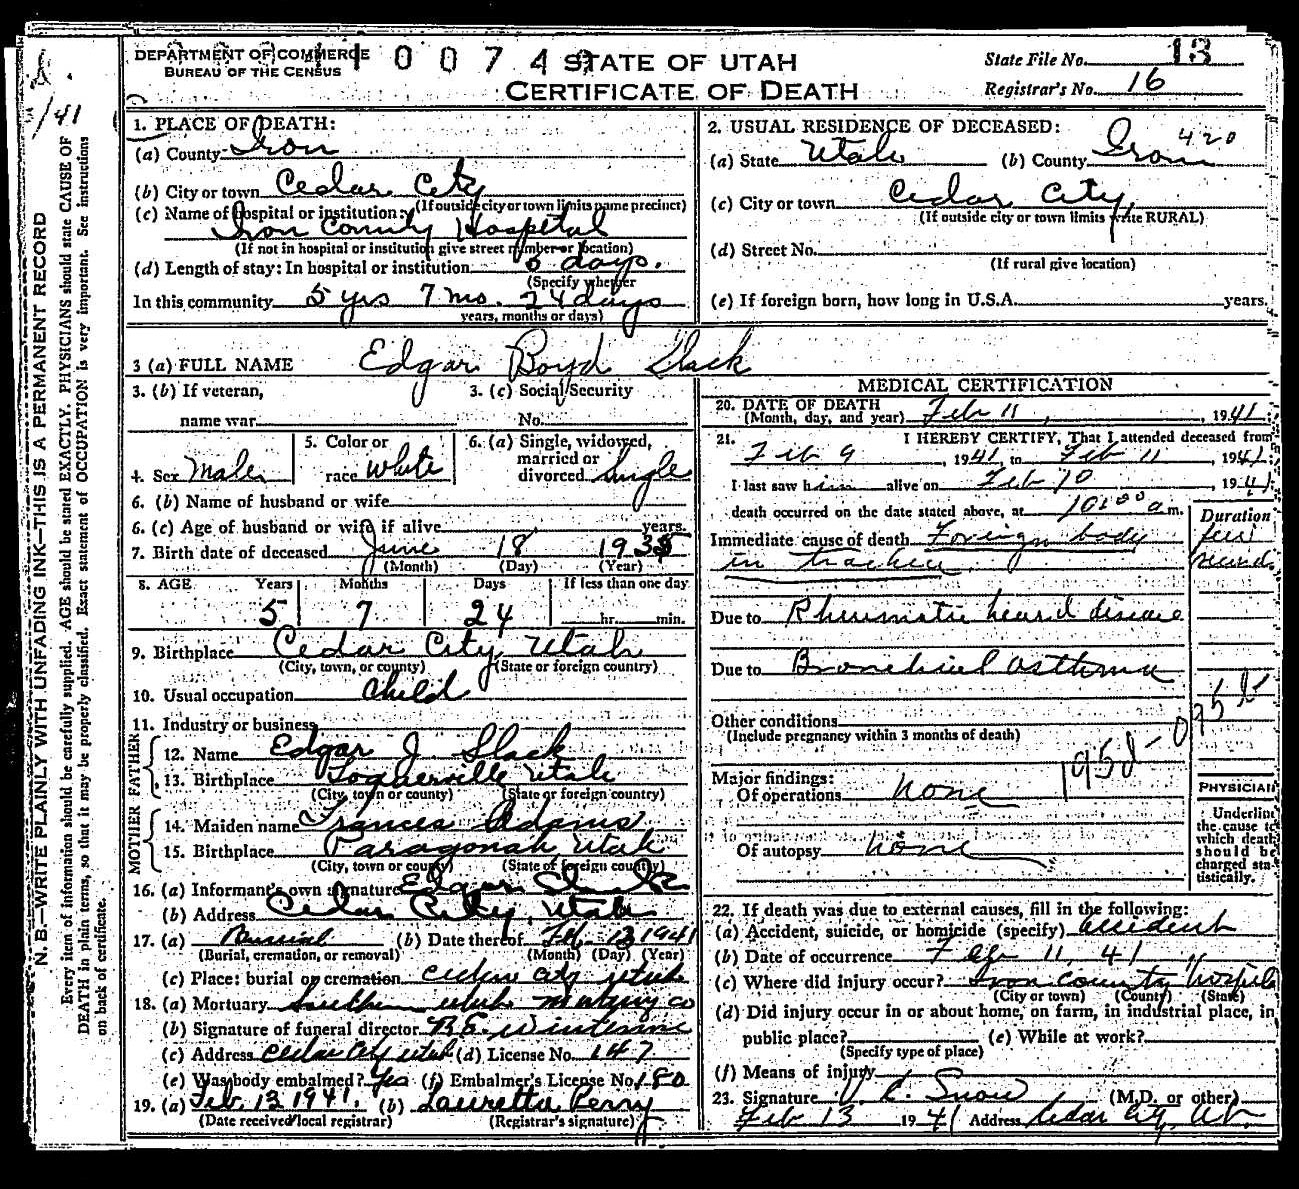 DEPARTMENT OF COMMERCE
BUREAU OF THE CENSUS
100749
STATE OF UTAH
CERTIFICATE OF DEATH
State File No. 13
Registrar's No. 16
/41
N. B.—WRITE PLAINLY WITH UNFADING INK—THIS IS A PERMANENT RECORD
Every item of information should be carefully supplied. AGE should be stated EXACTLY. PHYSICIANS should state CAUSE OF
DEATH in plain terms, so that it may be properly classified. Exact statement of OCCUPATION is very important. See instructions
on back of certificate.
1. PLACE OF DEATH:
(a) County Iron
(b) City or town Cedar City
(If outside city or town limits name precinct)
(c) Name of hospital or institution:
Iron County Hospital
(If not in hospital or institution give street number or location)
(d) Length of stay: In hospital or institution days.
(Specify whether
In this community 5 yrs 7 mo. 24 days
years, months or days)
2. USUAL RESIDENCE OF DECEASED:
420
(a) State Utah (b) County Iron
(c) City or town Cedar City
(If outside city or town limits write RURAL)
(d) Street No.
(If rural give location)
(e) If foreign born, how long in U.S.A. years.
3 (a) FULL NAME Edgar Boyd Slack
3. (b) If veteran,
name war
3. (c) Social Security
No.
4. Sex Male
5. Color or
race White
6. (a) Single, widowed,
married or
divorced Single
6. (b) Name of husband or wife
6. (c) Age of husband or wife if alive years.
7. Birth date of deceased June 18 1935
(Month) (Day) (Year)
8. AGE Years Months Days If less than one day
5 7 24 hr. min.
9. Birthplace Cedar City, Utah
(City, town, or county) (State or foreign country)
10. Usual occupation Child
11. Industry or business
FATHER
12. Name Edgar J Slack
13. Birthplace Toquerville Utah
(City, town or county) (State or foreign country)
MOTHER
14. Maiden name Frances Adams
15. Birthplace Paragonah Utah
(City, town or county) (State of foreign country)
16. (a) Informant's own signature Edgar Slack
(b) Address Cedar City, Utah
17. (a) Burial (b) Date thereof Feb. 13 1941
(Burial, cremation, or removal) (Month) (Day) (Year)
(c) Place: burial or cremation Cedar City Utah
18. (a) Mortuary Southern Utah Mortuary Co
(b) Signature of funeral director
(c) Address Cedar City Utah (d) License No. 147
(e) Was body embalmed? Yes (f) Embalmer's License No. 180
19. (a) Feb. 13 1941. (b) Lauretta Perry
(Date received local registrar) (Registrar's signature)
MEDICAL CERTIFICATION
20. DATE OF DEATH
(Month, day, and year) Feb 11, 1941
21. I HEREBY CERTIFY, That I attended deceased from
Feb 9, 1941 to Feb 11, 1941
I last saw him alive on Feb 10, 1941
death occurred on the date stated above, at 10:00 a m.
Duration
Immediate cause of death Foreign body
in trachea.
few
seconds
Due to Rheumatic heart disease
Due to Bronchial asthma
Other conditions
(Include pregnancy within 3 months of death)
Major findings:
Of operations none
Of autopsy none
PHYSICIAN
Underline
the cause to
which death
should be
charged sta-
tistically.
22. If death was due to external causes, fill in the following:
(a) Accident, suicide, or homicide (specify) accident
(b) Date of occurrence Feb 11, 41
(c) Where did injury occur? Iron County Hospital
(City or town) (County) (State)
(d) Did injury occur in or about home, on farm, in industrial place, in
public place? (e) While at work?
(Specify type of place)
(f) Means of injury
23. Signature Snow (M.D. or other)
Feb 13 1941 Address Cedar City, Ut.